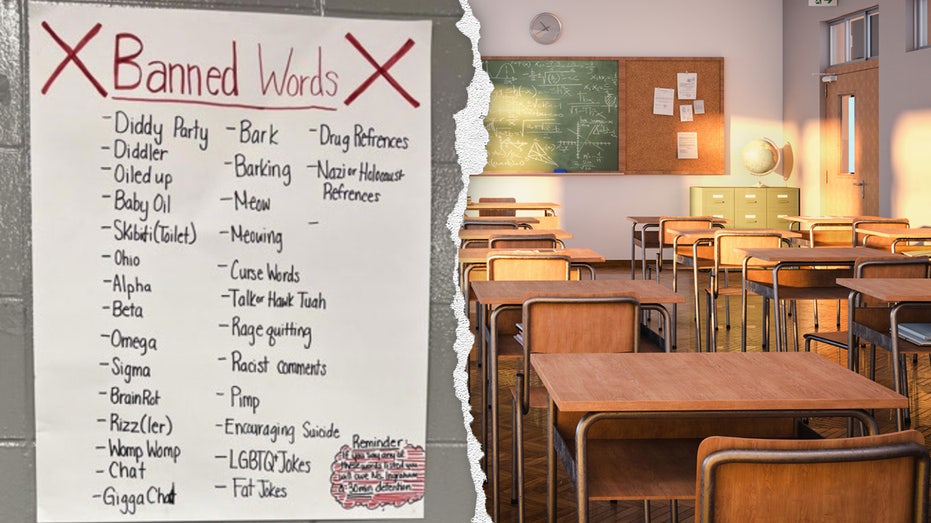 Banned Words
- Diddy Party
- Diddler
- Oiled up
- Baby Oil
- Skibiti(Toilet)
- Ohio
- Alpha
- Beta
- Omega
- Sigma
- BrainRot
- Rizz(ler)
- Womp Womp
- Chat
- Gigga
- Bark
- Barking
- Meow
- Meowing
- Curse Words
- Talk or Hawk Tuah
- Rage quitting
- Racist comments
- Pimp
- Encouraging Suicide
- LGBTQ+ Jokes
- Fat Jokes
- Drug Refrences
- Nazi or Holocaust
Refrences
-
Reminder:
If you say any of
these words listed you
will owe Ms.
a 30min detention